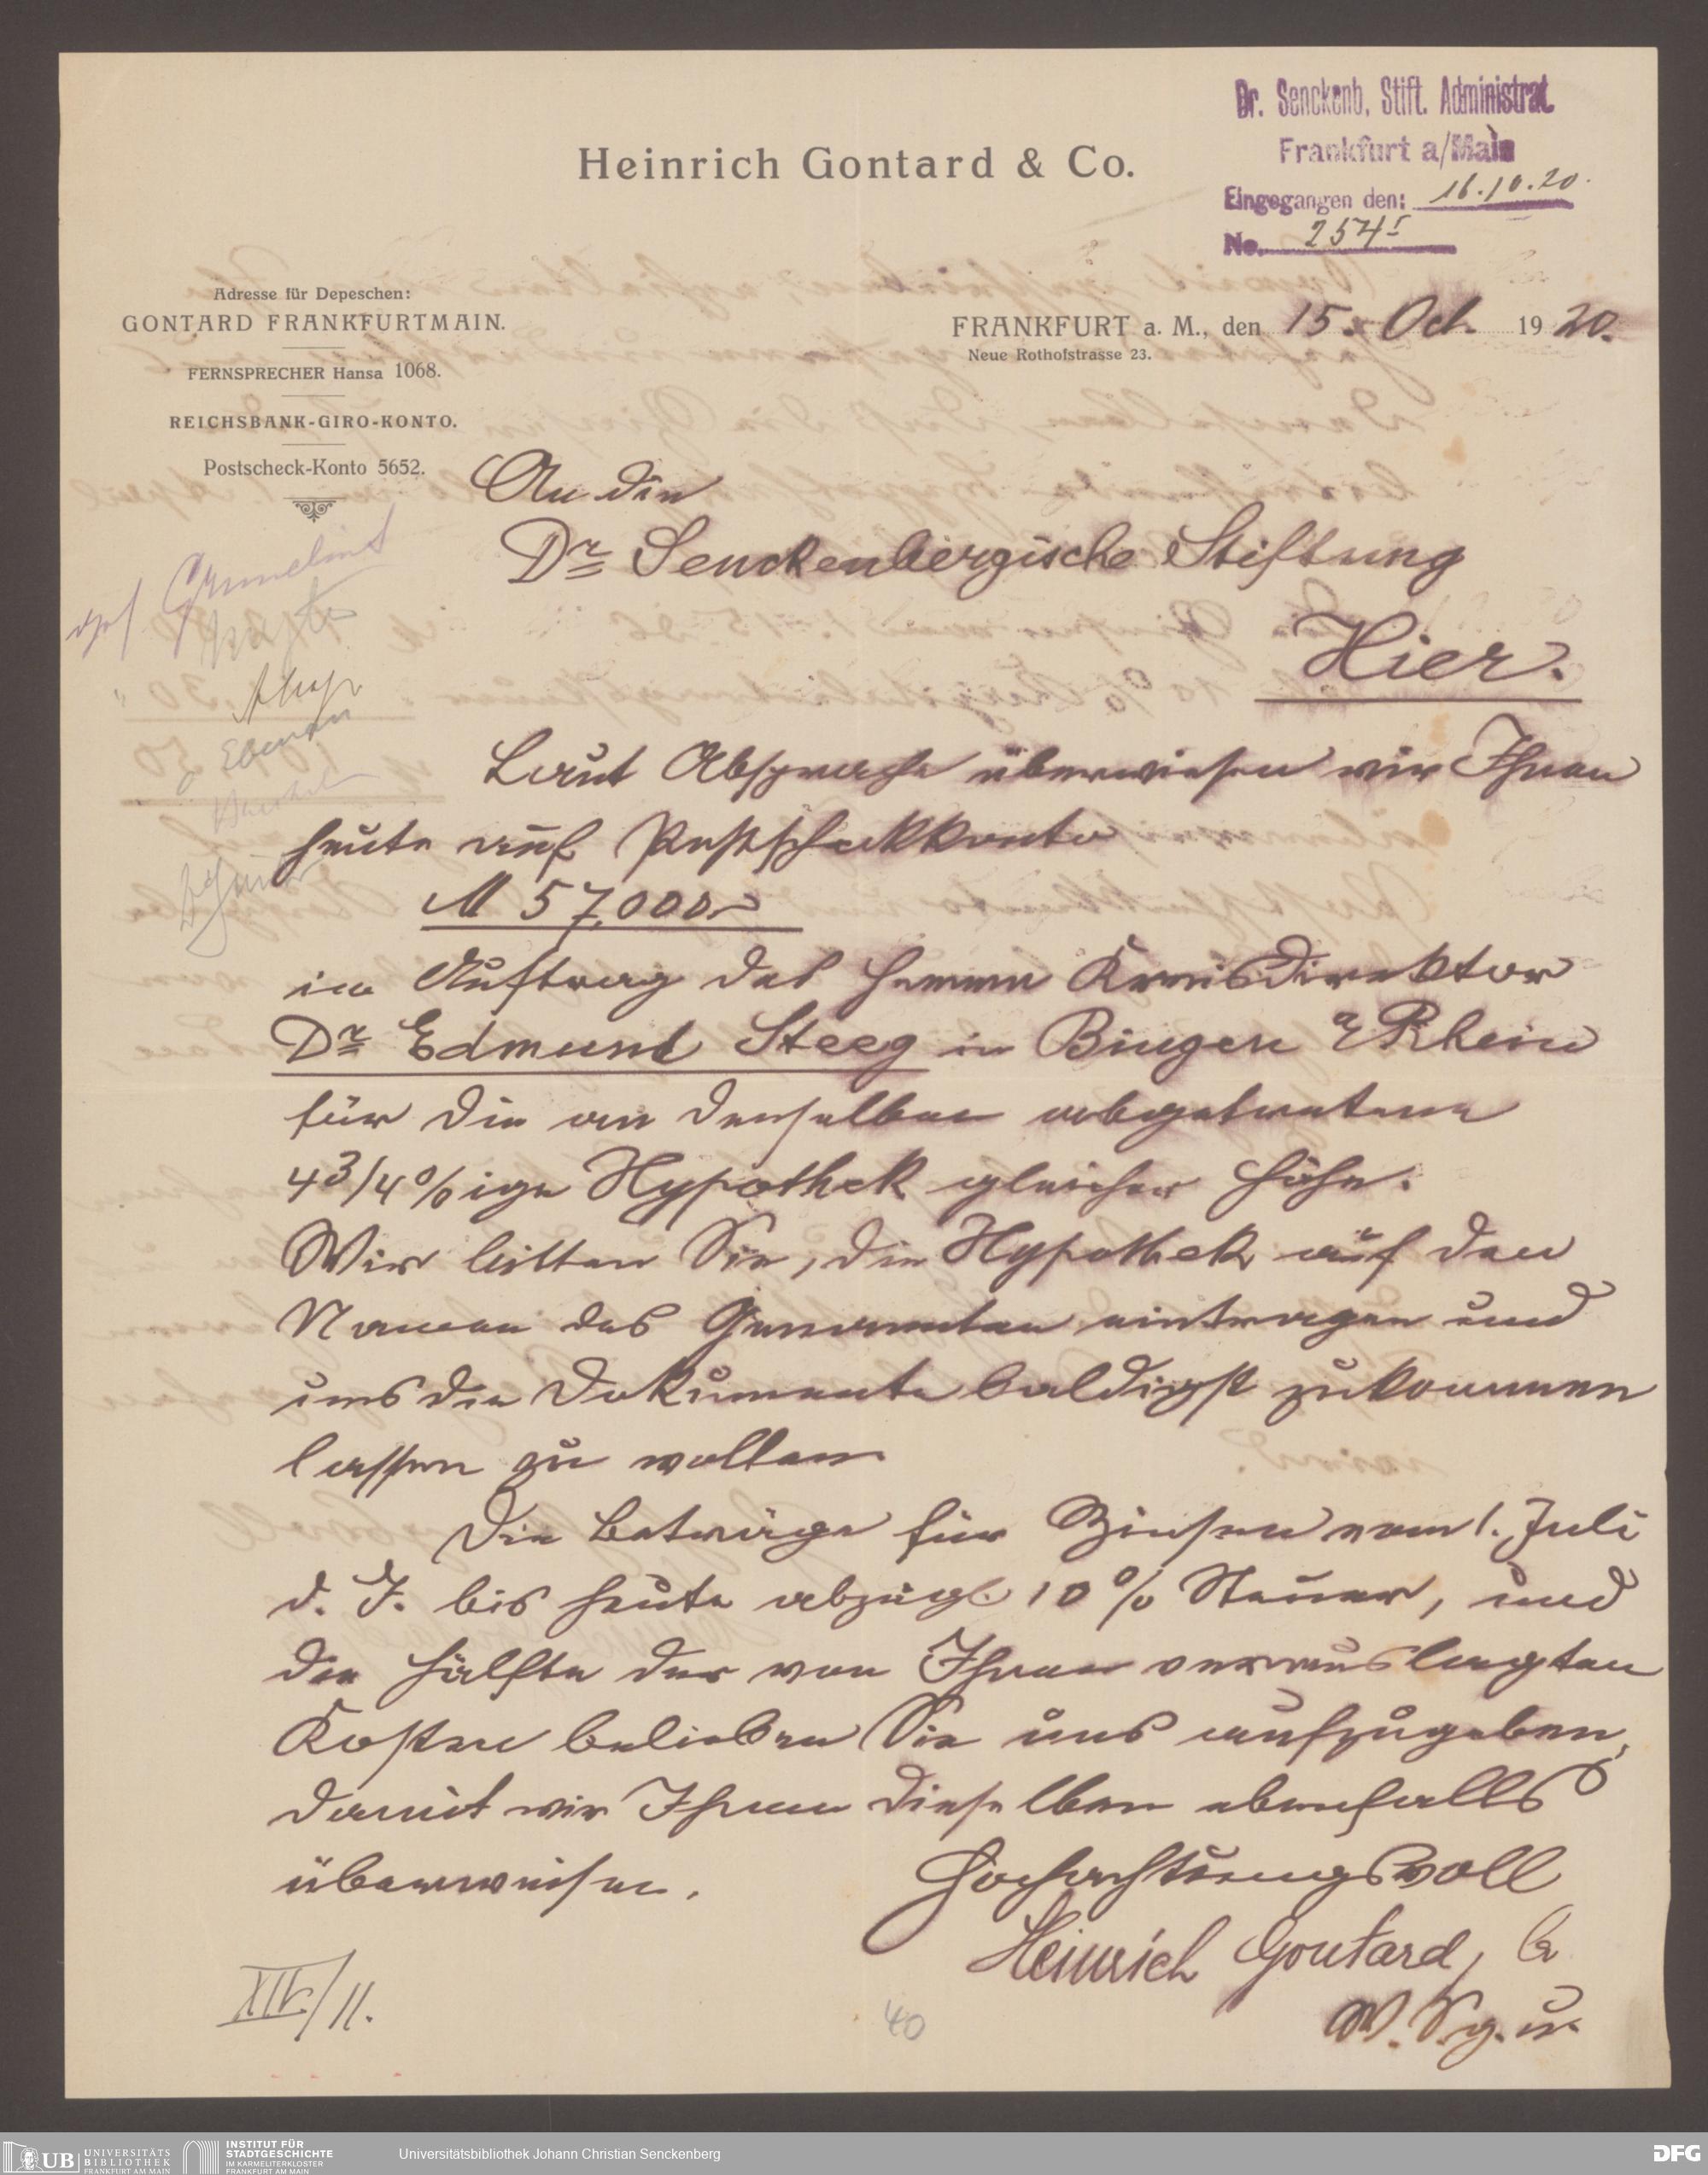 Dr. Senckenb. Stift. Administrat.
Frankfurt a/Main
Eingegangen den: 16.10.20.
No. 254 I
Heinrich Gontard & Co.
Adresse für Depeschen:
GONTARD FRANKFURTMAIN.
FERNSPRECHER Hansa 1068.
REICHSBANK-GIRO-KONTO.
Postscheck-Konto 5652.
FRANKFURT a. M., den 15. Oct. 1920.
Neue Rothofstrasse 23.
An die
Dr Senckenbergische Stiftung
Hier.
Laut Absprache überwiesen wir Ihnen
heute auf Postscheckkonto
M 57.000.-
im Auftrag des Herrn Kreisdirektor
Dr Edmund Steeg in Bingen a/Rhein
für die an denselben abgetretene
4 3/4 %ige Hypothek gleicher Höhe.
Wir bitten Sie, die Hypothek auf den
Namen des Genannten eintragen und
uns die Dokumente baldigst zukommen
lassen zu wollen.
Die Beträge für Zinsen vom 1. Juli
d. J. bis heute abzügl. 10 % Steuer, und
die Hälfte der von Ihnen verauslagten
Kosten belieben Sie uns aufzugeben,
damit wir Ihnen dieselben ebenfalls
überweisen.
Hochachtungsvoll
Heinrich Gontard, Co
XIV/11.
40
UB UNIVERSITÄTS
BIBLIOTHEK
FRANKFURT AM MAIN
INSTITUT FÜR
STADTGESCHICHTE
IM KARMELITERKLOSTER
FRANKFURT AM MAIN
Universitätsbibliothek Johann Christian Senckenberg
DFG